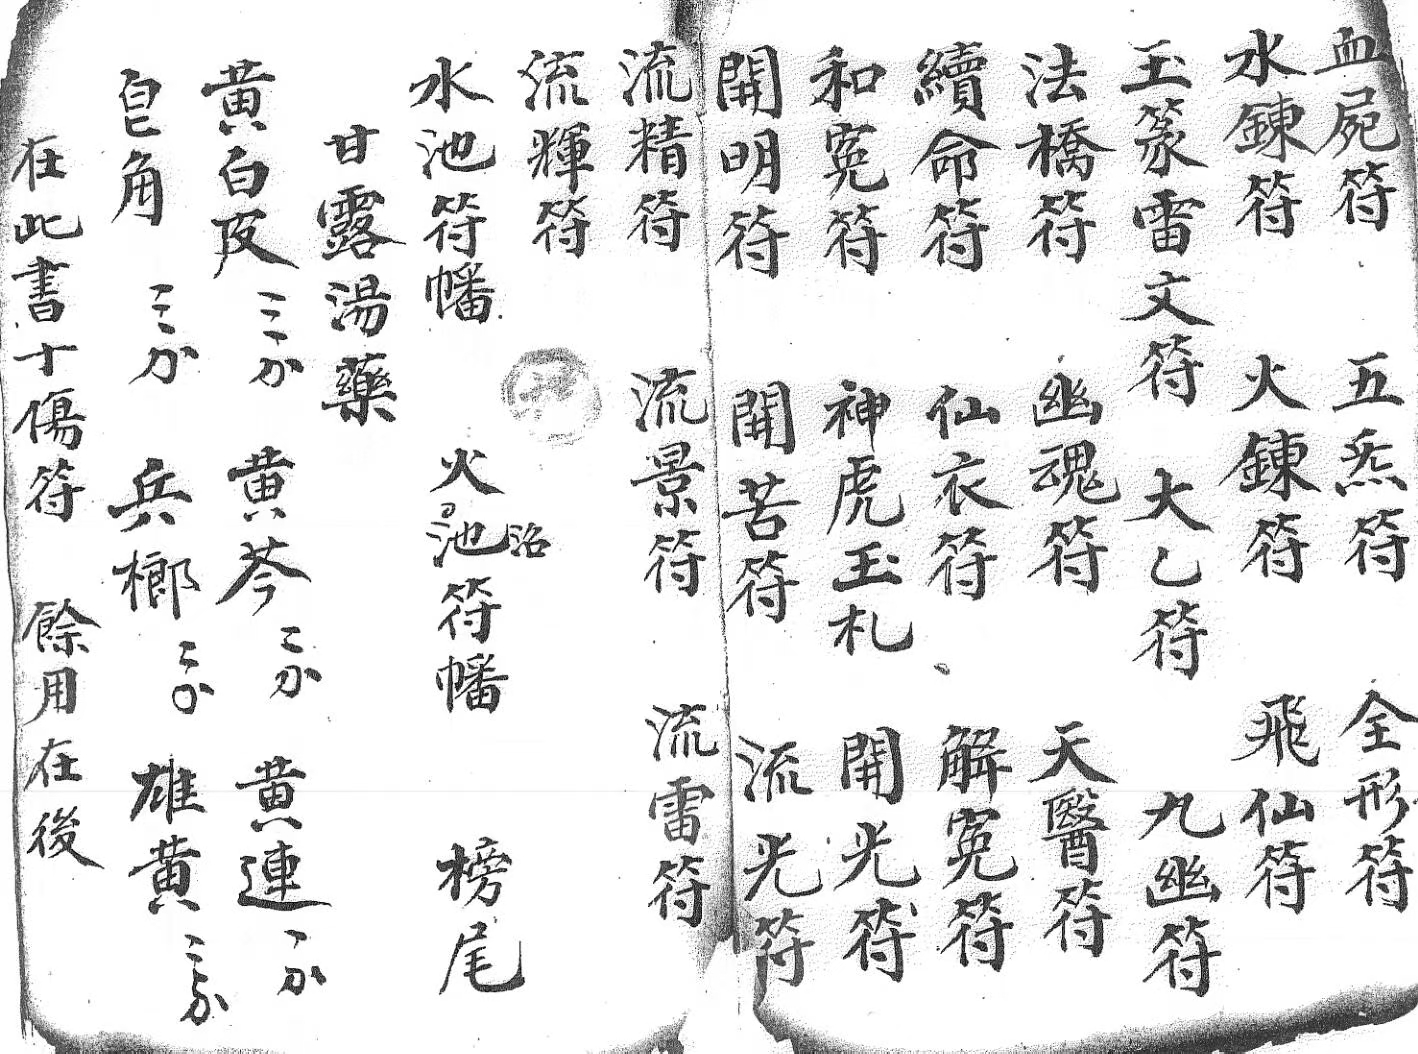 血屍符 五炁符 全形符
水鍊符 火鍊符 飛仙符
玉篆雷文符 大乙符 九幽符
法橋符 幽魂符 天醫符
續命符 仙衣符 解冤符
和冤符 神虎玉札 開光符
開明符 開苦符 流光符
流精符 流景符 流雷符
流輝符
水池符幡 火池沿符幡 榜尾
甘露湯藥
黄白皮 三分 黄芩 二分 黄連 二分
皂角 三分 兵榔 二分 雄黄 三分
在此書十傷符 餘用在後